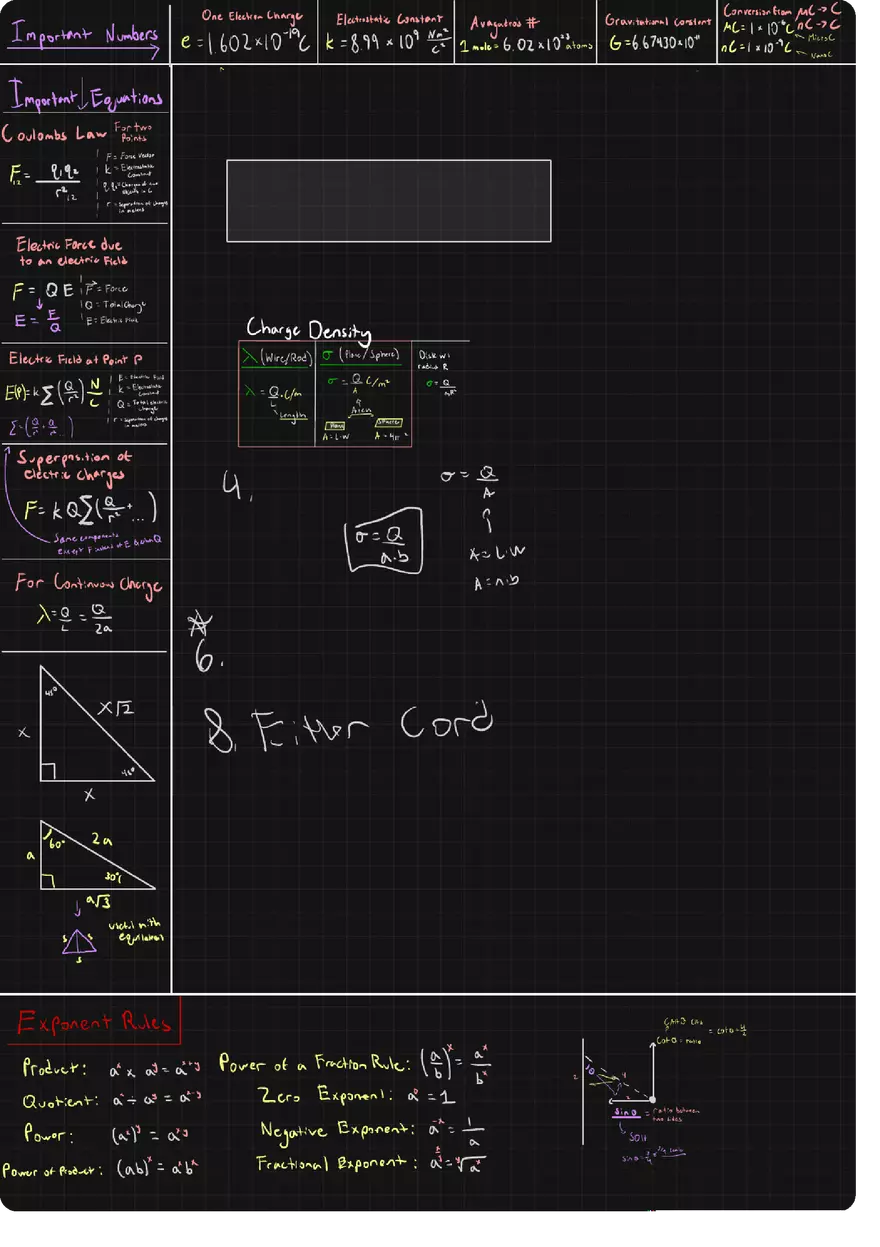 Important Numbers
One Electron Charge
e = 1.602 x 10^-19 C
Electrostatic Constant
k = 8.99 x 10^9 Nm²/C²
Avagadros #
1 mole = 6.02 x 10^23 atoms
Gravitational Constant
G = 6.67430 x 10^-11
Conversion from μC → C
nC → C
μC = 1 x 10^-6 C
Micro C
nC = 1 x 10^-9 C
Nano C
Important Equations
Coulombs Law For two
Points
F₁₂ = q₁q₂ / r²₁₂
F = Force Vector
k = Electrostatic
Constant
r = Separation of charges
in meters
Electric Force due
to an electric Field
F = QE
F = Force
Q = Total Charge
E = Electric Field
E = F/Q
Electric Field at Point P
E(P) = k Σ (Q/r²) N/C
E = Electric Field
k = Electrostatic
Constant
Q = Total electric
Charge
r = Separation of charges
in meters
Σ = (Q/r² + Q/r² ...)
Superposition of
electric Charges
F = k Q Σ (Q/r² + ...)
Same components
For Continuous Charge
λ = Q/L = Q/2a
45°
x√2
x
45°
x
60°
2a
a
30°
a√3
useful with
equilateral
s s
s
Charge Density
λ (Wire/Rod)
σ (Plane/Sphere)
Disk w/
radius R
λ = Q/L · C/m
Length
σ = Q/A C/m²
Area
Plane
Sphere
A = L·W
A = 4πr²
σ = Q/πR²
4.
σ = Q/a·b
σ = Q/A
A = L·W
A = a·b
6.
8. Either Cord
Exponent Rules
Product: a^x × a^y = a^x+y
Quotient: a^x ÷ a^y = a^x-y
Power: (a^x)^y = a^xy
Power of Product: (ab)^x = a^x b^x
Power of a Fraction Rule: (a/b)^x = a^x/b^x
Zero Exponent: a^0 = 1
Negative Exponent: a^-x = 1/a
Fractional Exponent: a^x/y = ^y√a^x
cot θ = ratio
sin θ = ratio between
two sides
SOH